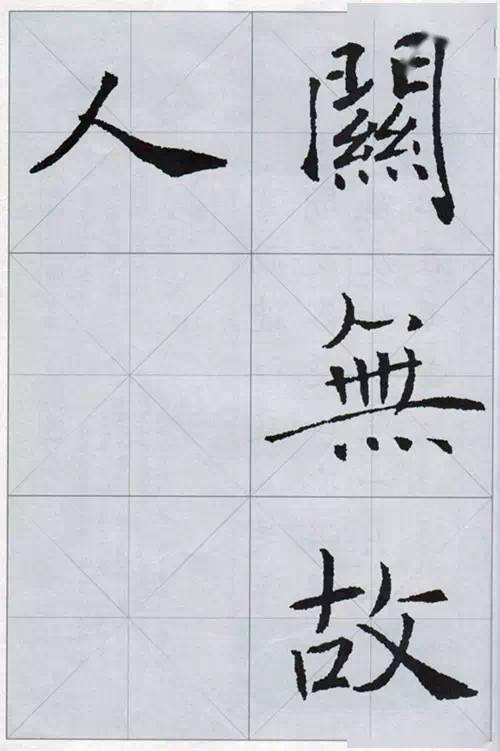 關無故
人